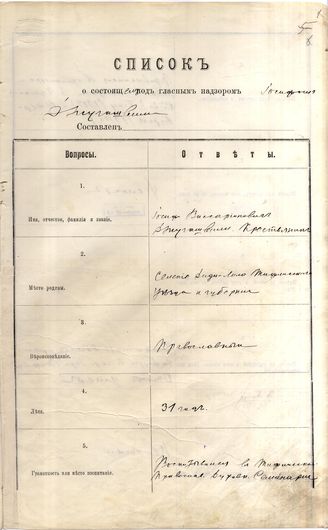 СПИСОКЪ
о состоящемъ подъ гласнымъ надзоромъ Іосифомъ
Джугашвили
Составленъ
Вопросы.
Отвѣты.
1.
Имя, отчество, фамилія и званіе.
Іосифъ Виссаріоновичъ
Джугашвили Крестьянинъ
2.
Мѣсто родины.
Селеніе Диди-Лило Тифлисскаго
уѣзда и губерніи
3.
Вѣроисповѣданіе.
Православный
4.
Лѣта.
31 годъ.
5.
Грамотность или мѣсто воспитанія.
Воспитывался въ Тифлисской
Православ. Духовн. Семинаріи